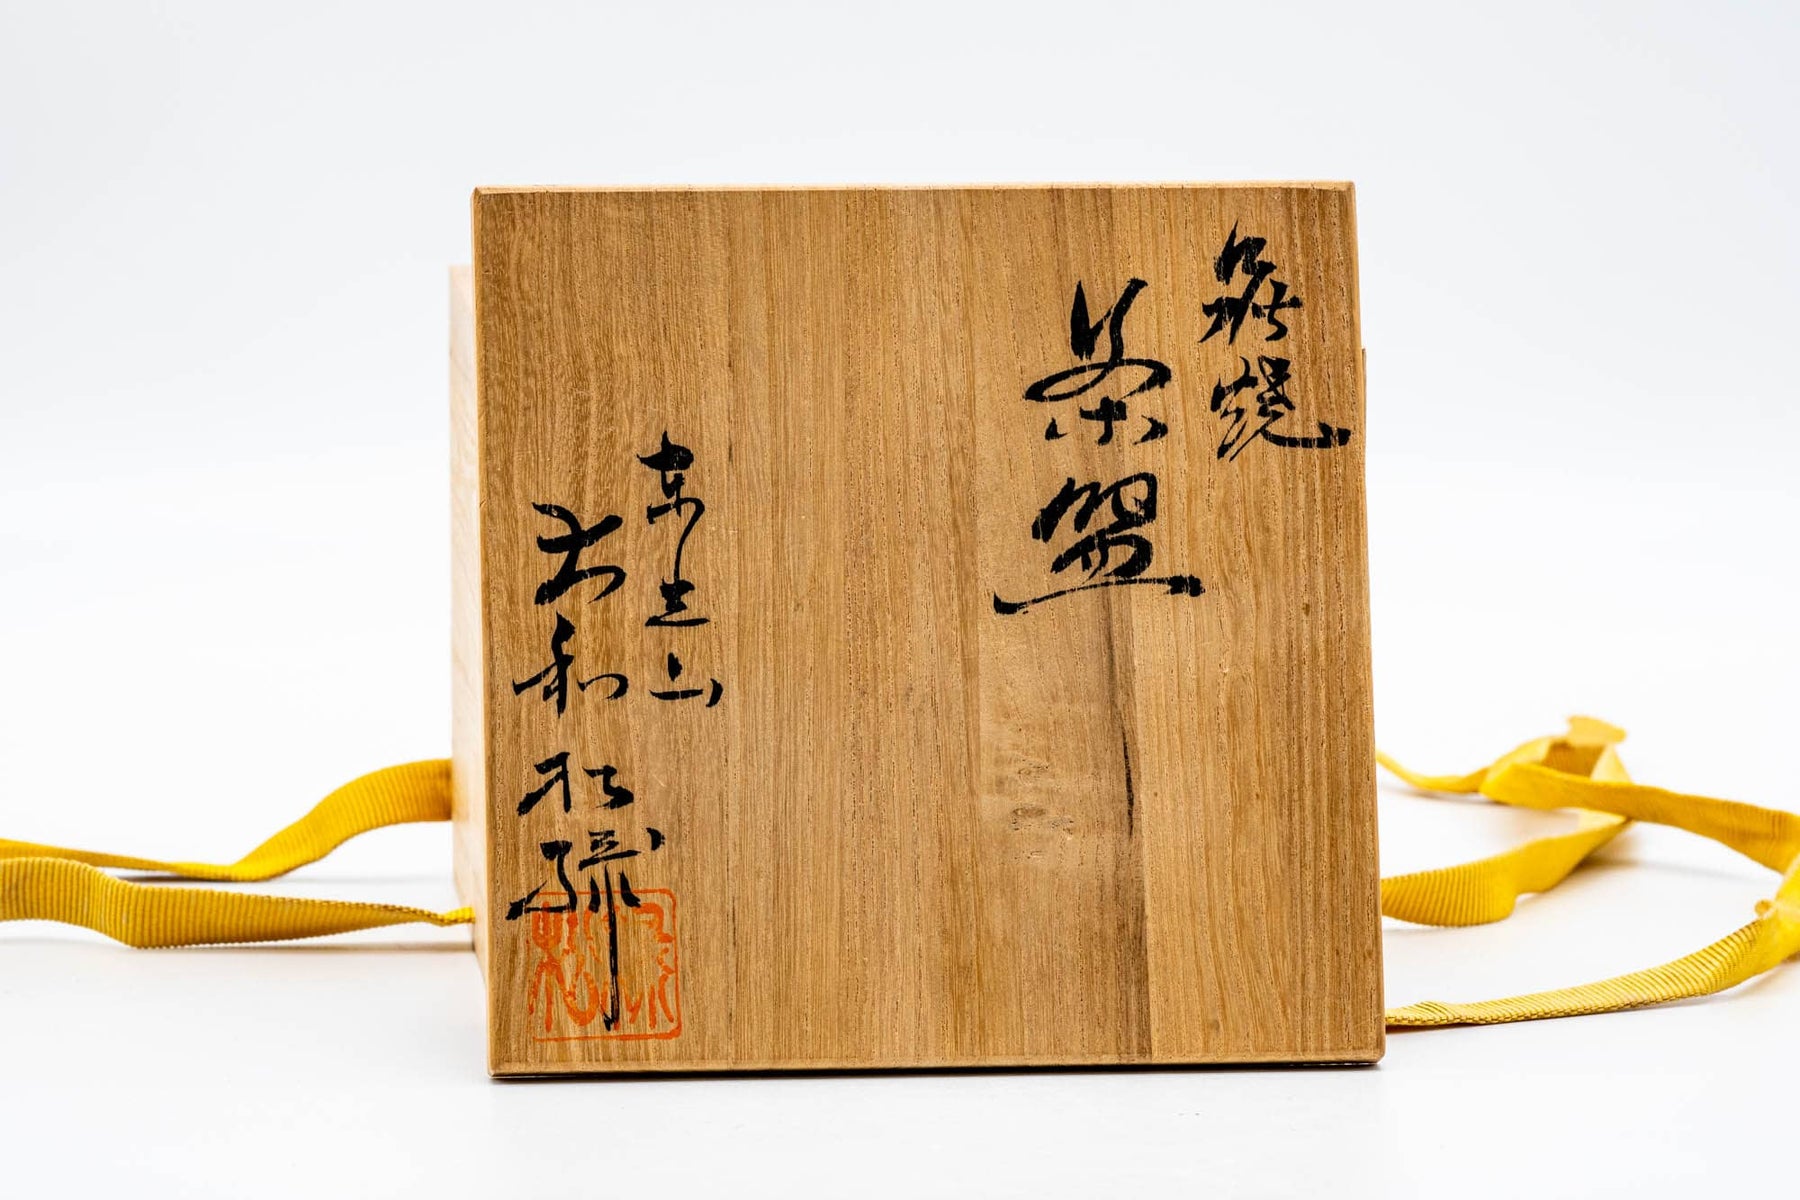 萩焼
茶盌
東光山
大和松緑